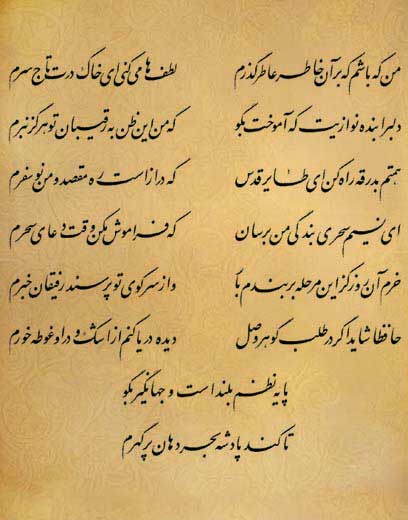 من که باشم که بر آن خاطر عاطر گذرم لطف‌ها می‌کنی ای خاک درت تاج سرم
دلبرا بنده نوازیت که آموخت بگو که من این ظن به رقیبان تو هرگز نبرم
همتم بدرقه راه کن ای طایر قدس که دراز است ره مقصد و من نوسفرم
ای نسیم سحری بندگی من برسان که فراموش مکن وقت دعای سحرم
خرم آن روز کز این مرحله بربندم بار و از سر کوی تو پرسند رفیقان خبرم
حافظا شاید اگر در طلب گوهر وصل دیده دریا کنم از اشک و در او غوطه خورم
پایه نظم بلند است و جهانگیر بگو
تا کند پادشه بحر دهان پر گهرم